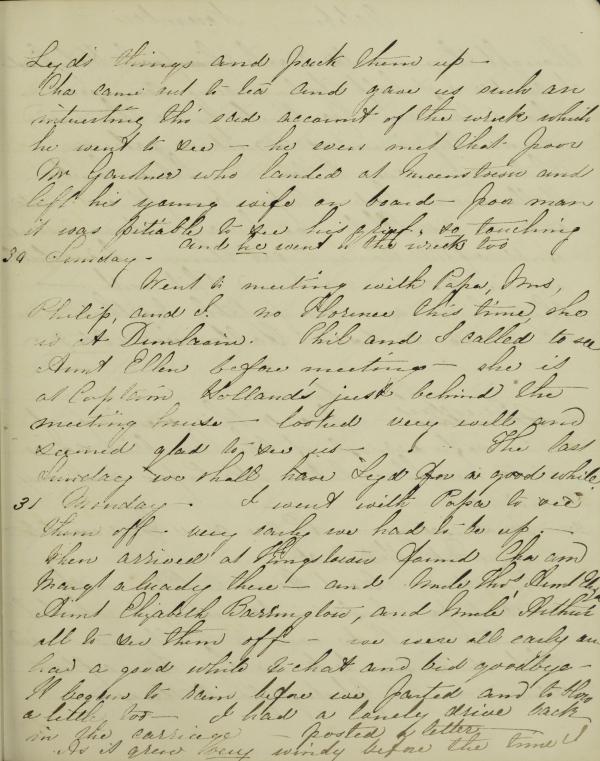 Lyd's things and pack them up -
Cha came out to tea and gave us such an
interesting tho' sad account of the wreck which
he went to see - he even met that poor
Mr Gardner who landed at Queenstown and
left his young wife on board - poor man
it was pitiable to see his grief, so touching
and he went to the wreck too
30 Sunday -
Went to meeting with Papa,
Philip, and I. no Florence this time, she
is at Dunlavin. Phil and I called to see
Aunt Ellen before meeting - she is
at Captain Holland's just behind the
meeting house - looked very well and
seemed glad to see us - The last
Sunday we shall have Lyd for a good while.
31 Monday - I went with Papa to see
them off - very early we had to be up -
When arrived at Kingstown found Cha and
Margt already there - and Uncle Thos Aunt
Aunt Elizabeth Barrington, and Uncle Arthur
all to see them off - we were all early and
had a good while to chat and bid goodbye -
It began to rain before we parted and to blow
a little, too - I had a lonely drive back
in the carriage - posted a letter
As it grew very windy before the time I